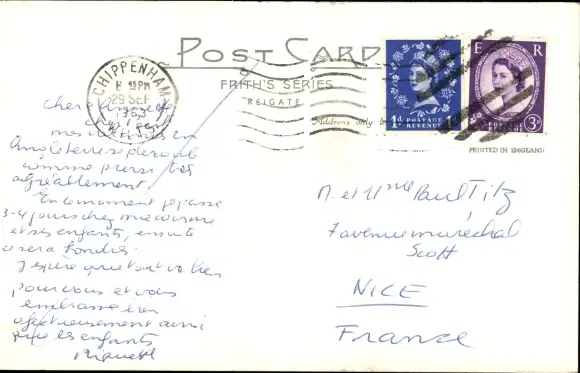 POST CARD
FRITH'S SERIES
REIGATE
CHIPPENHAM
8 15PM
29 SEP
1963
WILTS
Address only
E R
1d POSTAGE
REVENUE
POSTAGE
REVENUE 3d
PRINTED IN ENGLAND
Chers
mes en
Angleterre se déroule
comme prévu très
agréablement.
En ce moment je passe
3-4 jours chez
et ses enfants, ensuite
ce sera Londres.
J'espère que tout va bien
pour vous et vous
embrasse bien
affectueusement ainsi
que les enfants
M et Mme Paul Titz
7 avenue maréchal
Scott
NICE
France